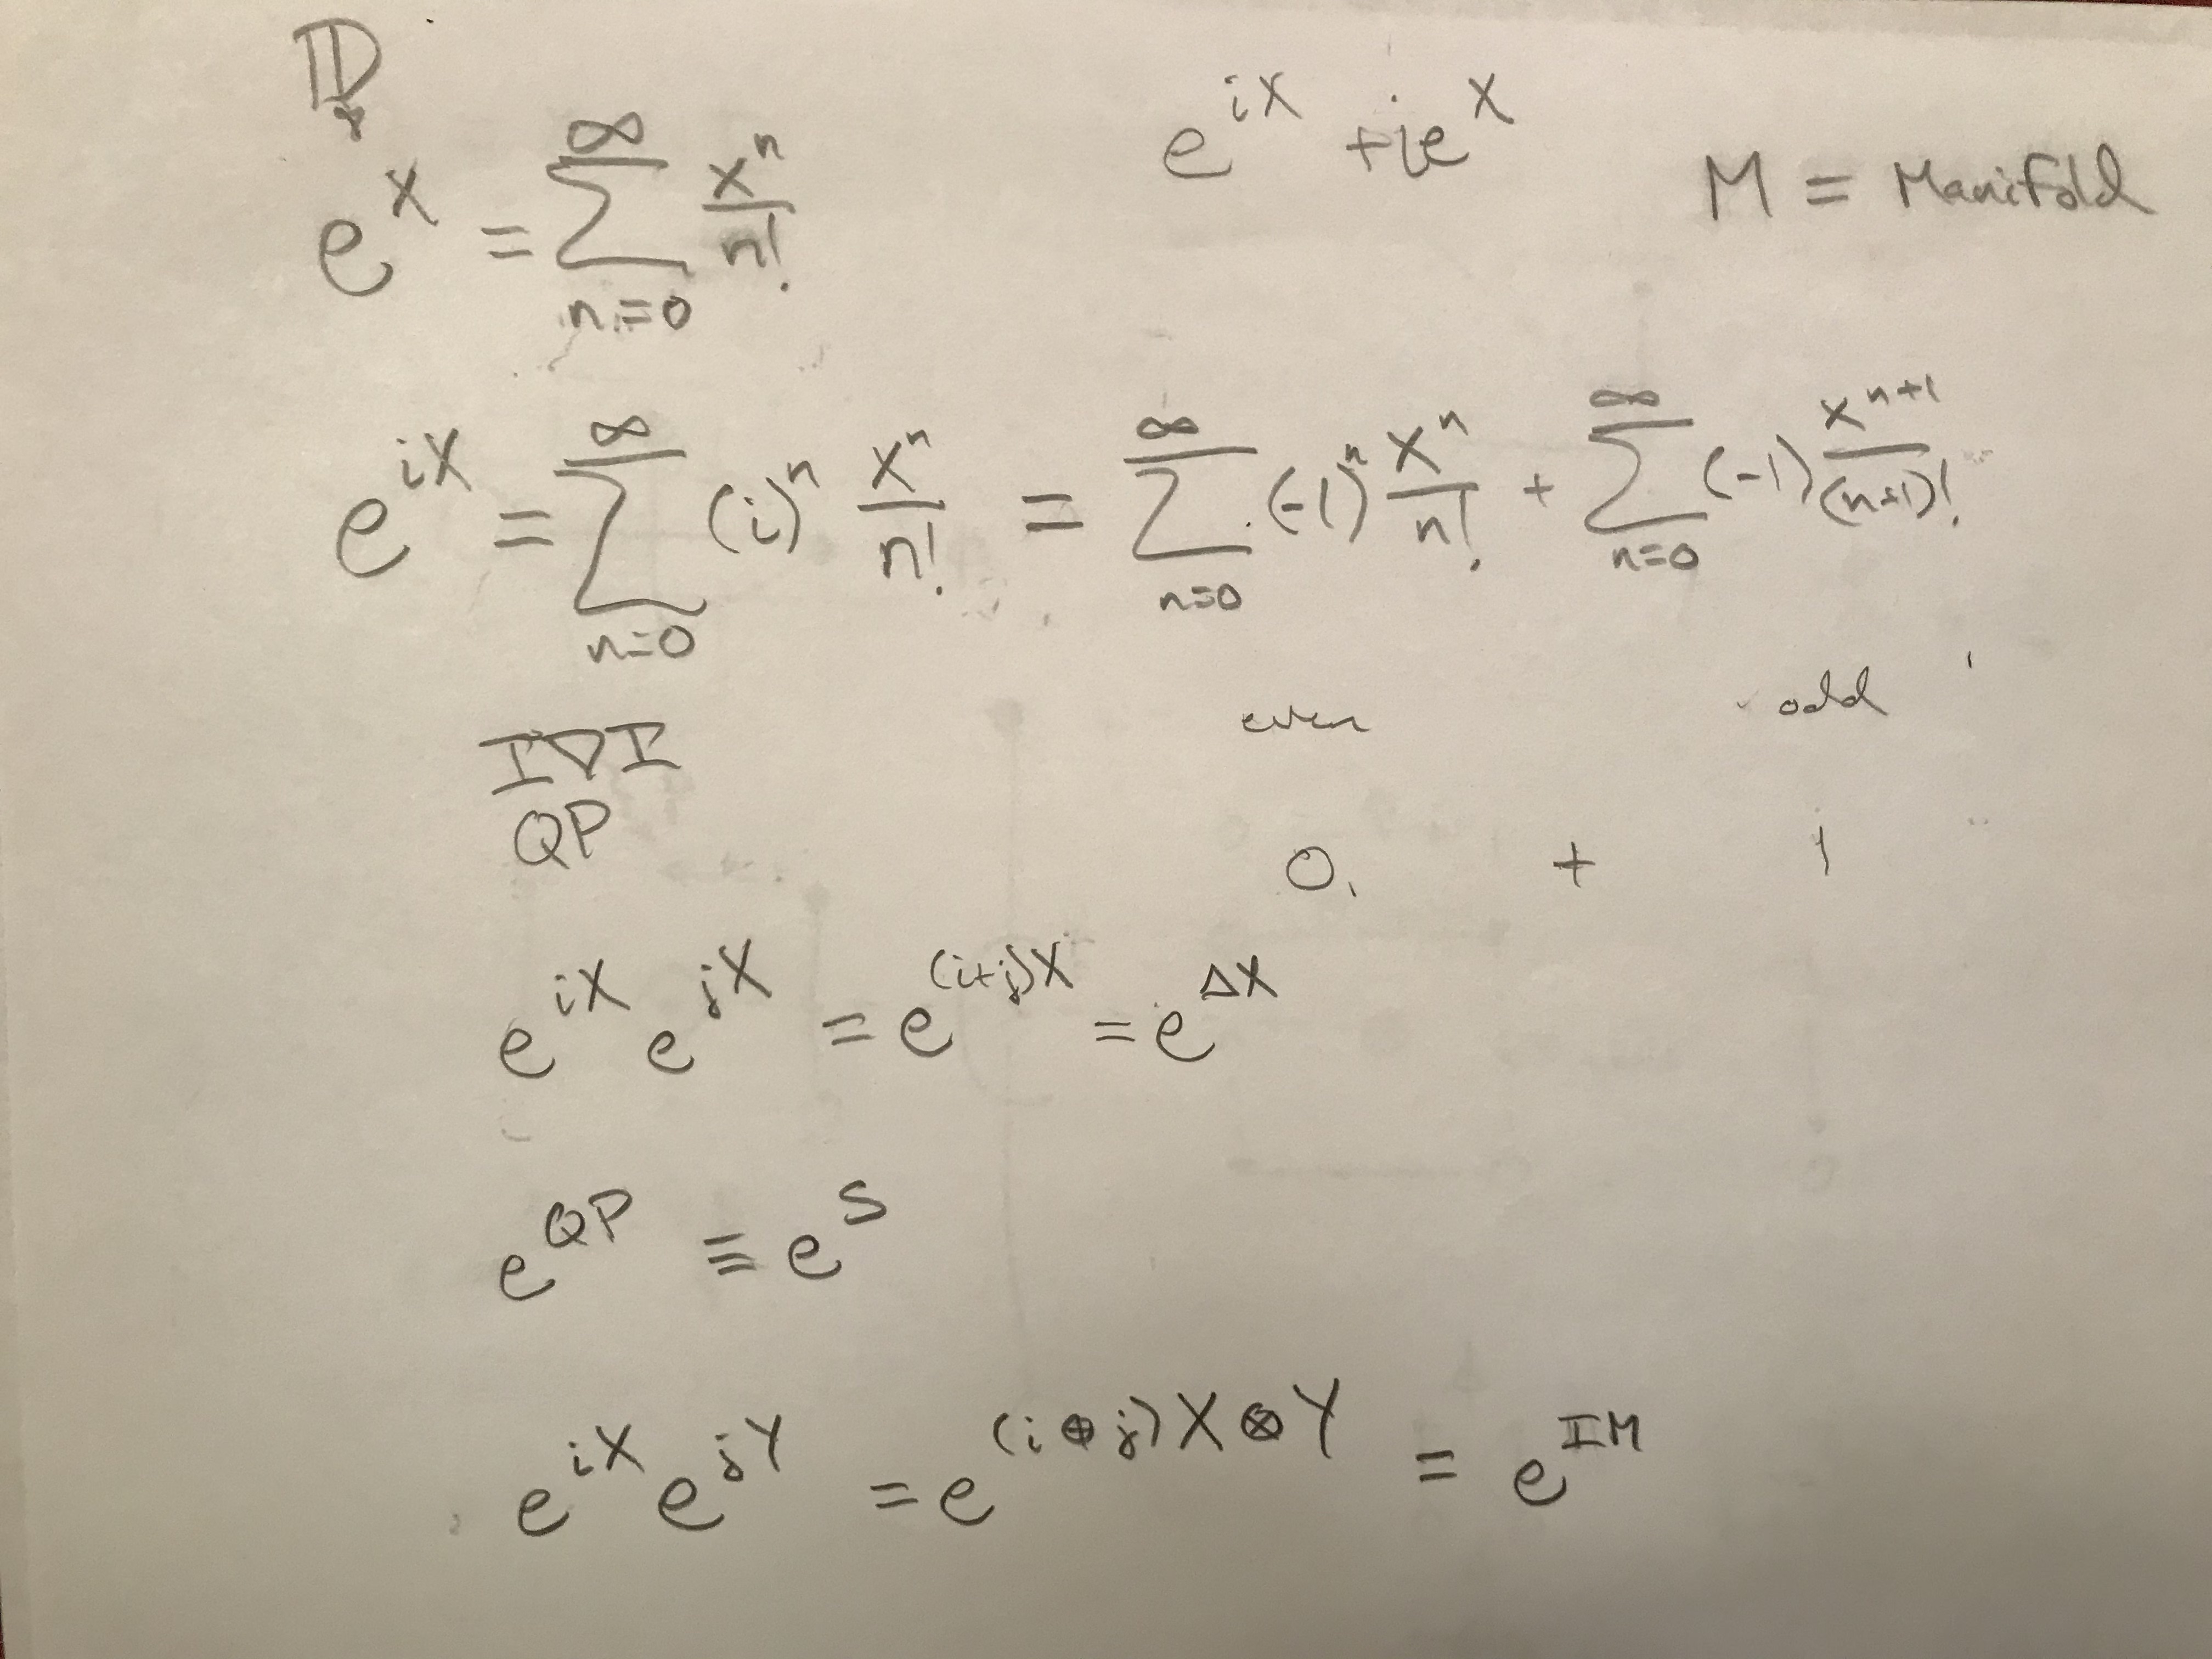 ID
e^{iX} + ie^X
M = Manifold
e^X = ∑_{n=0}^{∞} X^n / n!
e^{iX} = ∑_{n=0}^{∞} (i)^n X^n / n! = ∑_{n=0}^{∞} (-1)^n X^n / n! + ∑_{n=0}^{∞} (-1) X^{n+1} / (n+1)!
even odd
QP
0 + 1
e^{iX} e^{jX} = e^{(i+j)X} = e^{ΔX}
e^{QP} ≡ e^S
e^{iX} e^{jY} = e^{(i⊕j)X⊗Y} = e^{IM}